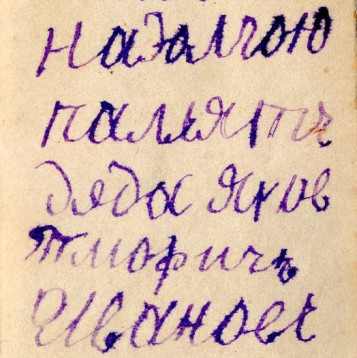 надолгою
памьять
дядя Яков
Тимофичь
Иванове